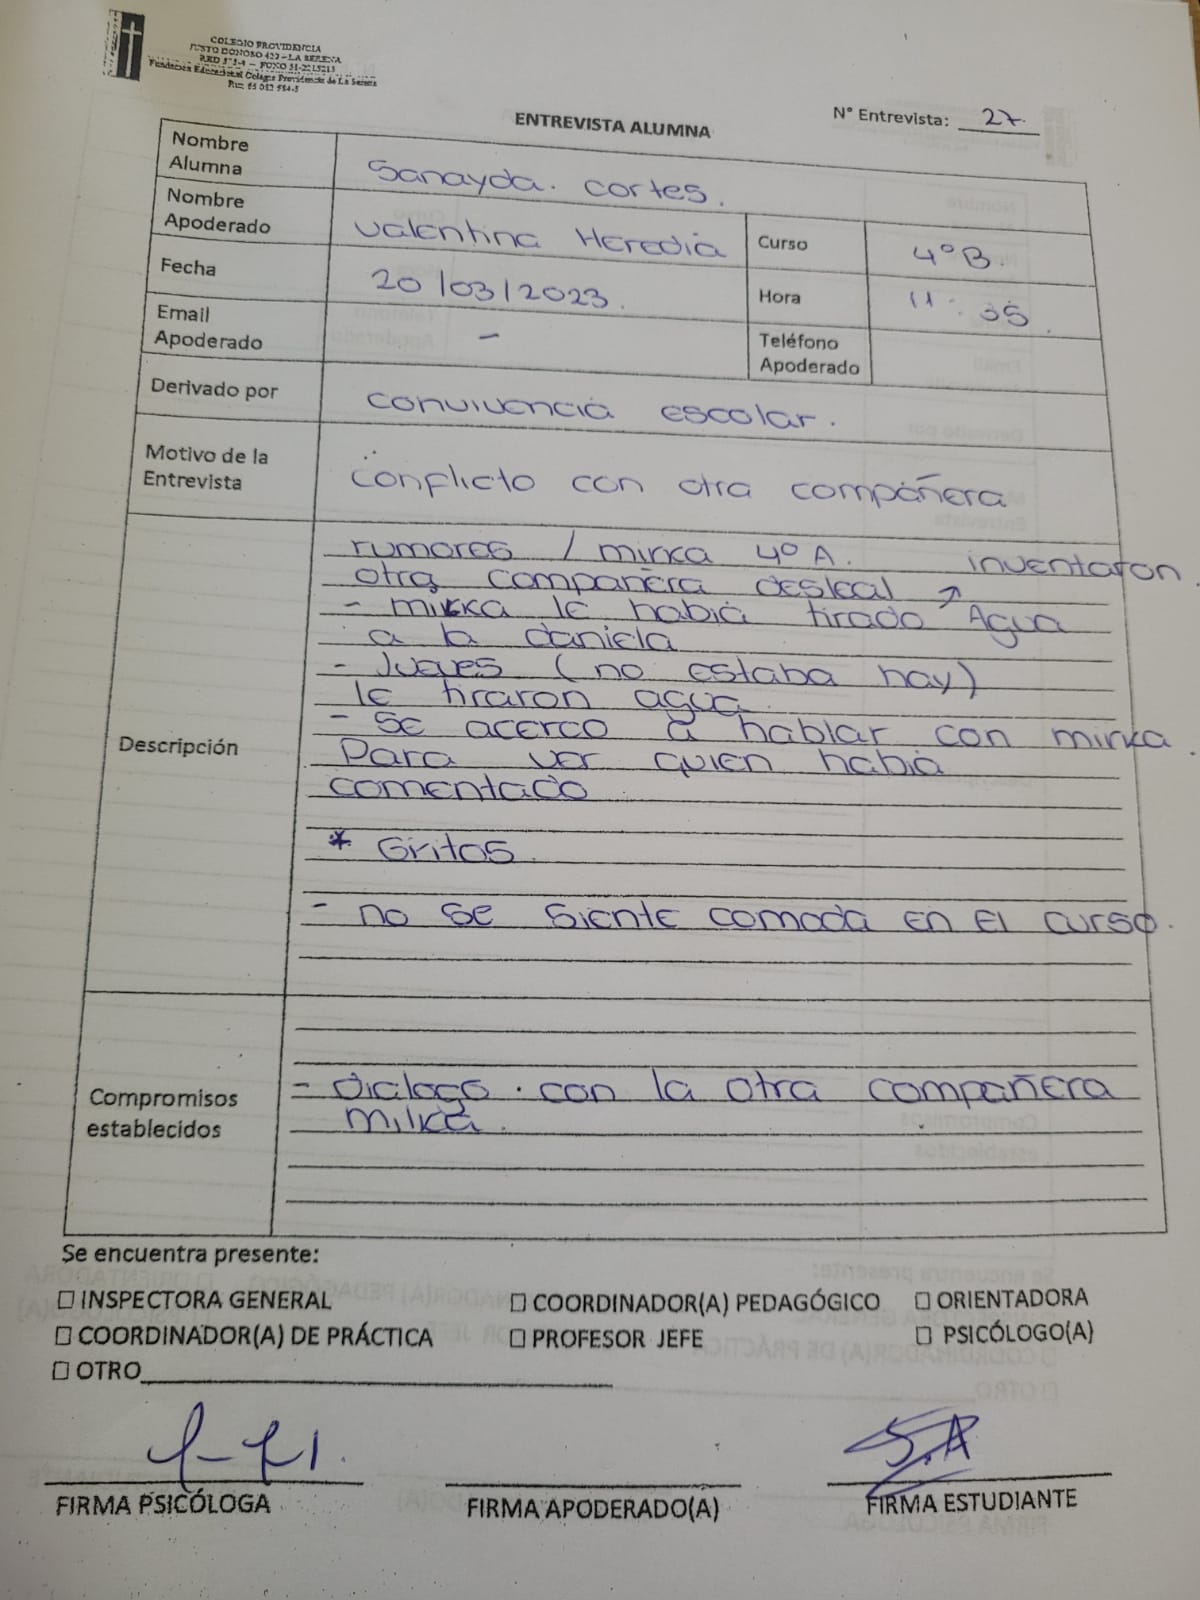 COLEGIO PROVIDENCIA
JUSTO DONOSO 420 - LA SERENA
Fundación Educacional Colegio Providencia de La Serena
ENTREVISTA ALUMNA
N° Entrevista: 27.
Nombre Alumna
Sanayda. cortes.
Nombre Apoderado
valentina Heredia
Curso
4°B.
Fecha
20/03/2023.
Hora
11:35.
Email Apoderado
-
Teléfono Apoderado
Derivado por
convivencia escolar.
Motivo de la Entrevista
conflicto con otra compañera
Descripción
rumores / mirka 4° A. inventaron.
otra compañera desleal ↗
- mirka le había tirado Agua
a la daniela
- Jueves (no estaba hay)
le tiraron agua.
- se acerco a hablar con mirka.
Para ver quien había
comentado
* Gritos.
- no se siente comoda en el curso.
Compromisos establecidos
- dialogo. con la otra compañera
milka.
Se encuentra presente:
☐ INSPECTORA GENERAL ☐ COORDINADOR(A) PEDAGÓGICO ☐ ORIENTADORA
☐ COORDINADOR(A) DE PRÁCTICA ☐ PROFESOR JEFE ☐ PSICÓLOGO(A)
☐ OTRO
S.A
FIRMA PSICÓLOGA FIRMA APODERADO(A) FIRMA ESTUDIANTE